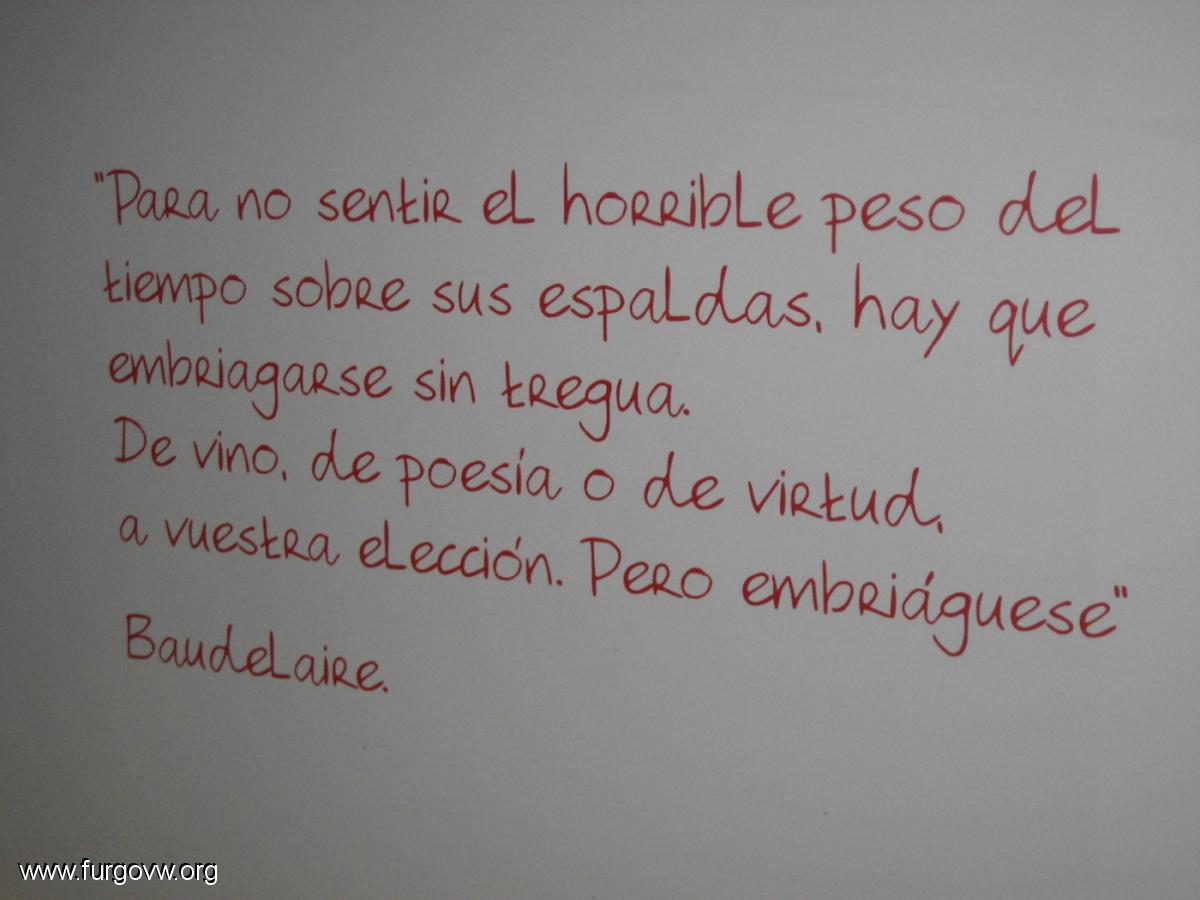 "Para no sentir el horrible peso del
tiempo sobre sus espaldas, hay que
embriagarse sin tregua.
De vino, de poesía o de virtud,
a vuestra elección. Pero embriáguese"
Baudelaire.
www.furgovw.org